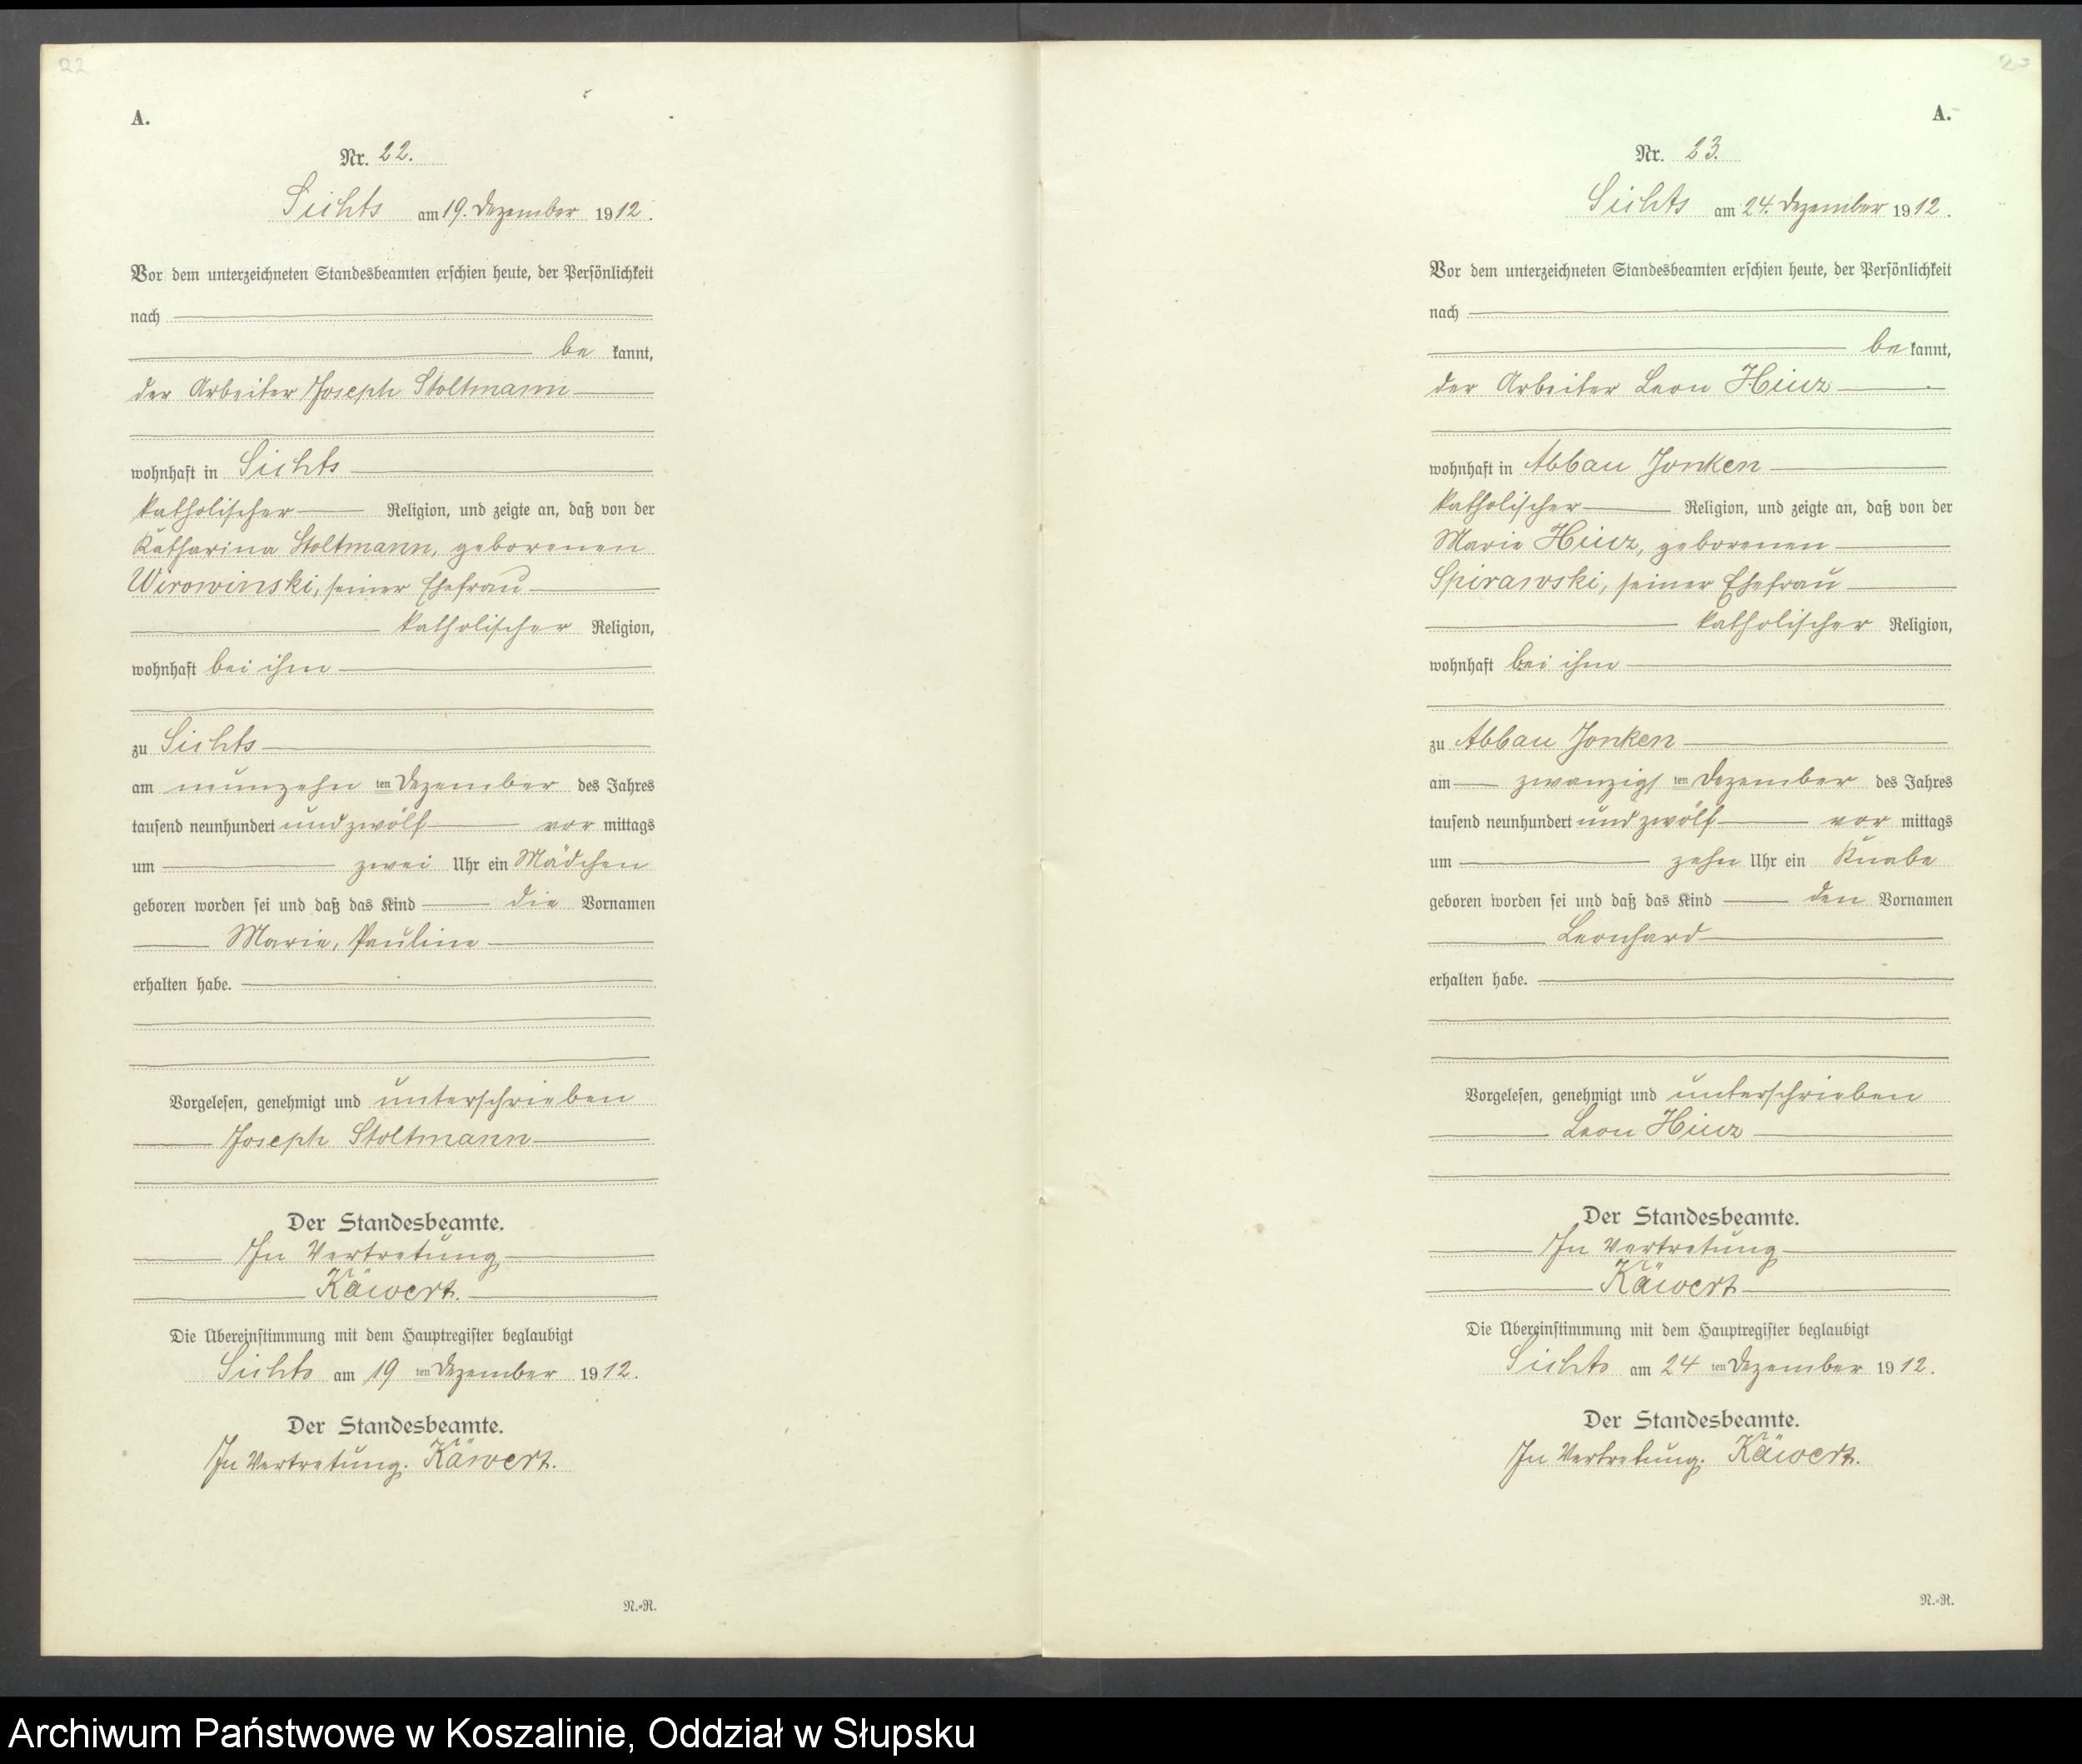 22
A.
Nr. 22.
Sichts am 19. Dezember 1912.
Vor dem unterzeichneten Standesbeamten erschien heute, der Persönlichkeit
nach
be kannt,
der Arbeiter Joseph Stoltmann
wohnhaft in Sichts
katholischer Religion, und zeigte an, daß von der
Katharina Stoltmann, geborenen
Wirowinski, seiner Ehefrau
katholischer Religion,
wohnhaft bei ihm
zu Sichts
am neunzehn ten Dezember des Jahres
tausend neunhundert und zwölf vor mittags
um zwei Uhr ein Mädchen
geboren worden sei und daß das Kind die Vornamen
Marie, Pauline
erhalten habe.
Vorgelesen, genehmigt und unterschrieben
Joseph Stoltmann
Der Standesbeamte.
In Vertretung
Käwert.
Die Übereinstimmung mit dem Hauptregister beglaubigt
Sichts am 19 ten Dezember 1912.
Der Standesbeamte.
In Vertretung. Käwert.
N.=R.
A.
Nr. 23.
Sichts am 24. Dezember 1912.
Vor dem unterzeichneten Standesbeamten erschien heute, der Persönlichkeit
nach
be kannt,
der Arbeiter Leon Hinz
wohnhaft in Abbau Jonken
katholischer Religion, und zeigte an, daß von der
Marie Hinz, geborenen
Spirawski, seiner Ehefrau
katholischer Religion,
wohnhaft bei ihm
zu Abbau Jonken
am zwanzigs ten Dezember des Jahres
tausend neunhundert und zwölf vor mittags
um zehn Uhr ein Knabe
geboren worden sei und daß das Kind den Vornamen
Leonhard
erhalten habe.
Vorgelesen, genehmigt und unterschrieben
Leon Hinz
Der Standesbeamte.
In Vertretung
Käwert
Die Übereinstimmung mit dem Hauptregister beglaubigt
Sichts am 24 ten Dezember 1912.
Der Standesbeamte.
In Vertretung. Käwert.
N.=R.
Archiwum Państwowe w Koszalinie, Oddział w Słupsku